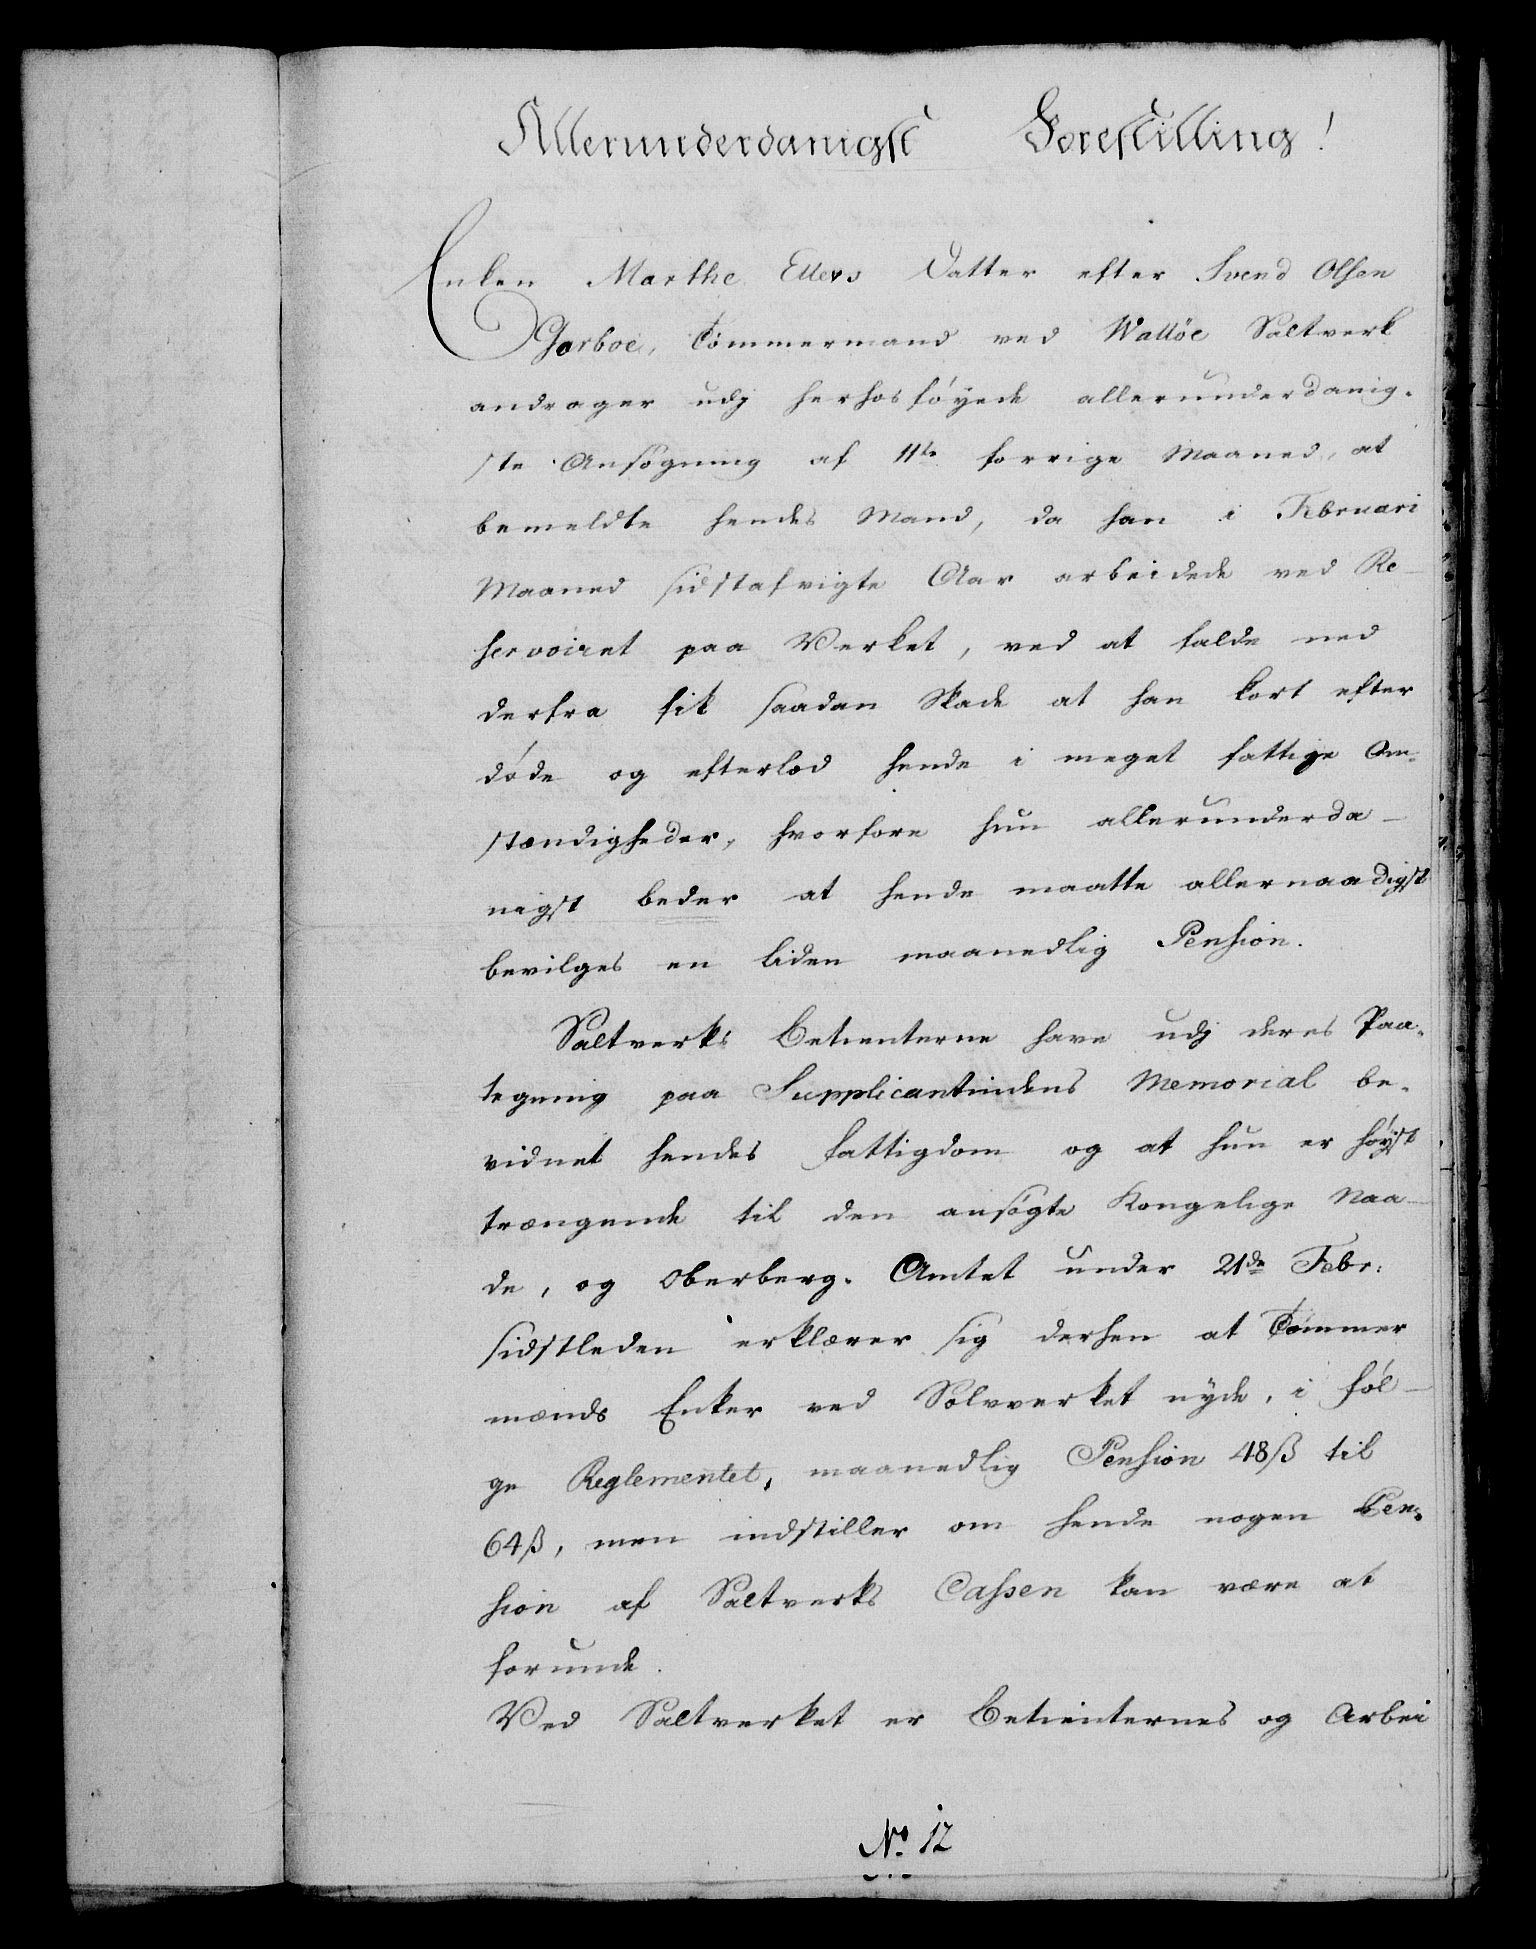 Allerunderdanigst Forestilling!
Enken Marthe Ellevs Datter efter Svend Olsen
Gorboe, Tømmermand ved Walløe Saltverk
andrager udj herhosføyede allerunderdanig-
ste Ansøgning af 11te forrige Maaned, at
bemeldte hendes Mand, da han i Februari
Maaned sidstafvigte Aar arbeidede ved Re-
servoiret paa Verket, ved at falde ned
derfra fik saadan Skade at han kort efter
døde og efterlod hende i meget fattige Om-
stændigheder, hvorfore hun allerunderda-
nigst beder at hende maatte allernaadigst
bevilges en liden maanedlig Pension.
Saltverks Betienterne have udj deres Paa-
tegning paa Supplicantindens Memorial be-
vidnet hendes Fattigdom og at hun er høyst
trængende til den ansøgte Kongelige Naa-
de, og Oberberg-Amtet under 21de Febr:
sidstleden erklærer sig derhen at Tømmer
mænds Enker ved Sølvverket nyde, i føl-
ge Reglementet, maanedlig Pension 48ß til
64ß, men indstiller om hende nogen Pen-
sion af Saltverks Cassen kan være at
forunde.
Ved Saltverket er Betienternes og Arbei
No. 12